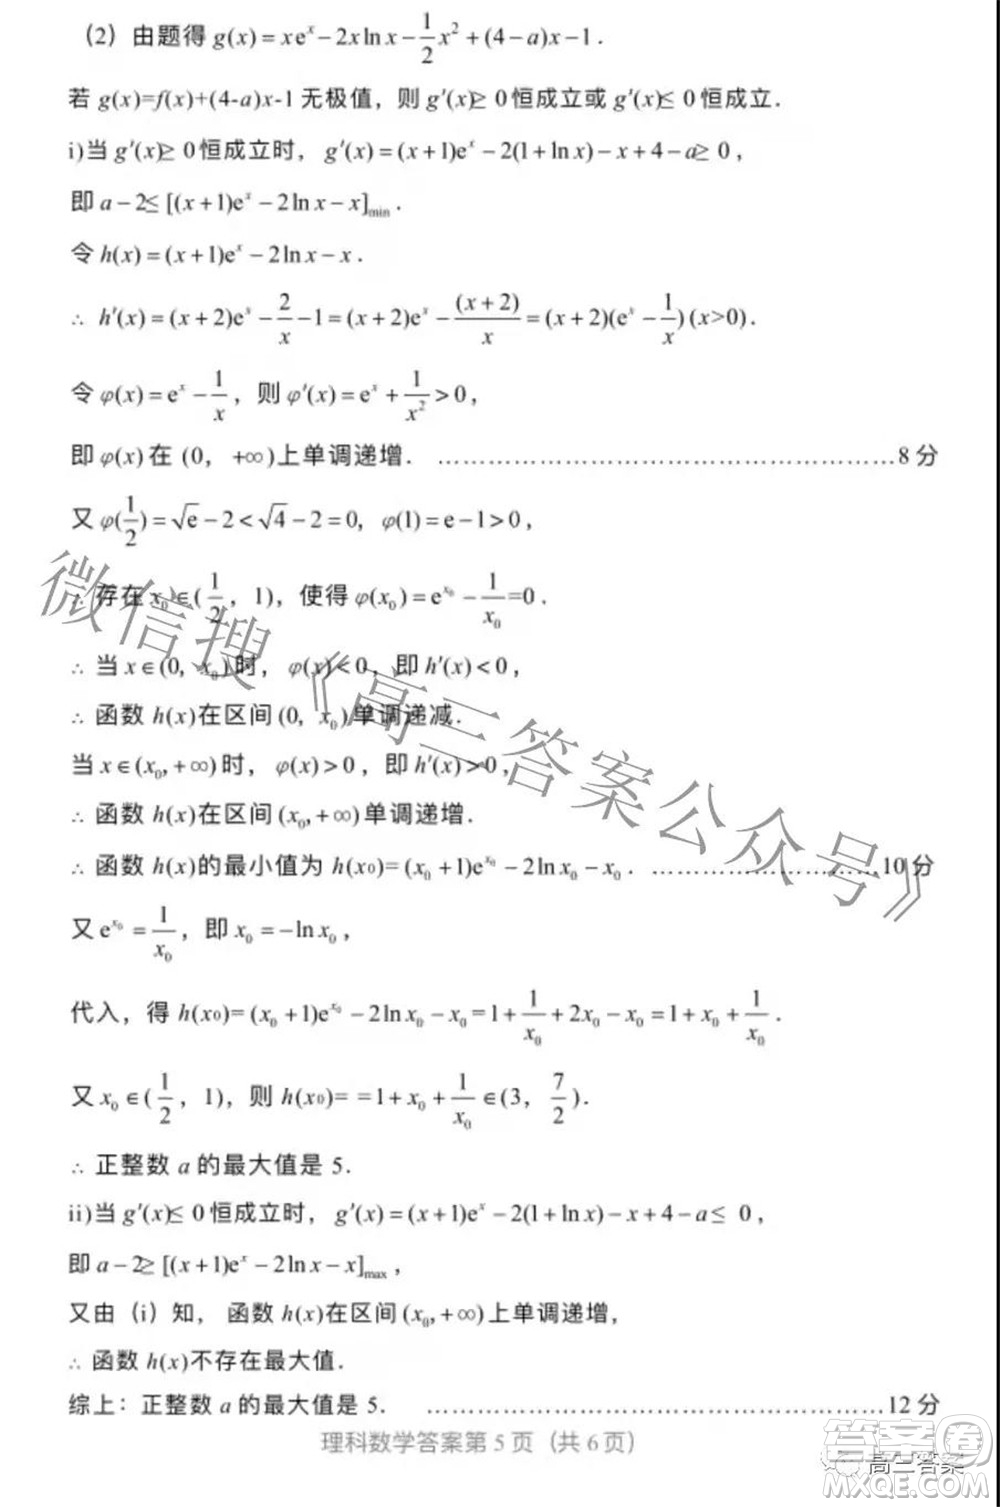 (2) 由题得 g(x)=xeˣ−2xlnx−1/2x²+(4−a)x−1.
若 g(x)=f(x)+(4-a)x-1 无极值，则 g′(x)≥0 恒成立或 g′(x)≤0 恒成立.
i)当 g′(x)≥0 恒成立时，g′(x)=(x+1)eˣ−2(1+lnx)−x+4−a≥0，
即 a−2≤[(x+1)eˣ−2lnx−x]min.
令 h(x)=(x+1)eˣ−2lnx−x.
∴ h′(x)=(x+2)eˣ−2/x−1=(x+2)eˣ−(x+2)/x=(x+2)(eˣ−1/x)(x>0).
令 φ(x)=eˣ−1/x，则 φ′(x)=eˣ+1/x²>0，
即 φ(x) 在 (0，+∞)上单调递增. ……………………………………………8 分
又 φ(1/2)=√e−2<√4−2=0，φ(1)=e−1>0，
∴ 存在 x₀∈(1/2，1)，使得 φ(x₀)=e^x₀−1/x₀=0.
∴ 当 x∈(0，x₀)时，φ(x)<0，即 h′(x)<0，
∴ 函数 h(x)在区间(0，x₀)单调递减.
当 x∈(x₀,+∞)时，φ(x)>0，即 h′(x)>0，
∴ 函数 h(x)在区间(x₀,+∞)单调递增.
∴ 函数 h(x)的最小值为 h(x₀)=(x₀+1)e^x₀−2lnx₀−x₀. ……………………10 分
又 e^x₀=1/x₀，即 x₀=−lnx₀，
代入，得 h(x₀)=(x₀+1)e^x₀−2lnx₀−x₀=1+1/x₀+2x₀−x₀=1+x₀+1/x₀.
又 x₀∈(1/2，1)，则 h(x₀)= =1+x₀+1/x₀∈(3，7/2).
∴ 正整数 a 的最大值是 5.
ii)当 g′(x)≤0 恒成立时，g′(x)=(x+1)eˣ−2(1+lnx)−x+4−a≤ 0，
即 a−2≥[(x+1)eˣ−2lnx−x]max，
又由（i）知，函数 h(x)在区间(x₀,+∞)上单调递增，
∴ 函数 h(x)不存在最大值.
综上：正整数 a 的最大值是 5. ……………………………………………12 分
理科数学答案第 5 页（共 6 页）
微信搜《高三答案公众号》
答案圈
高三答案